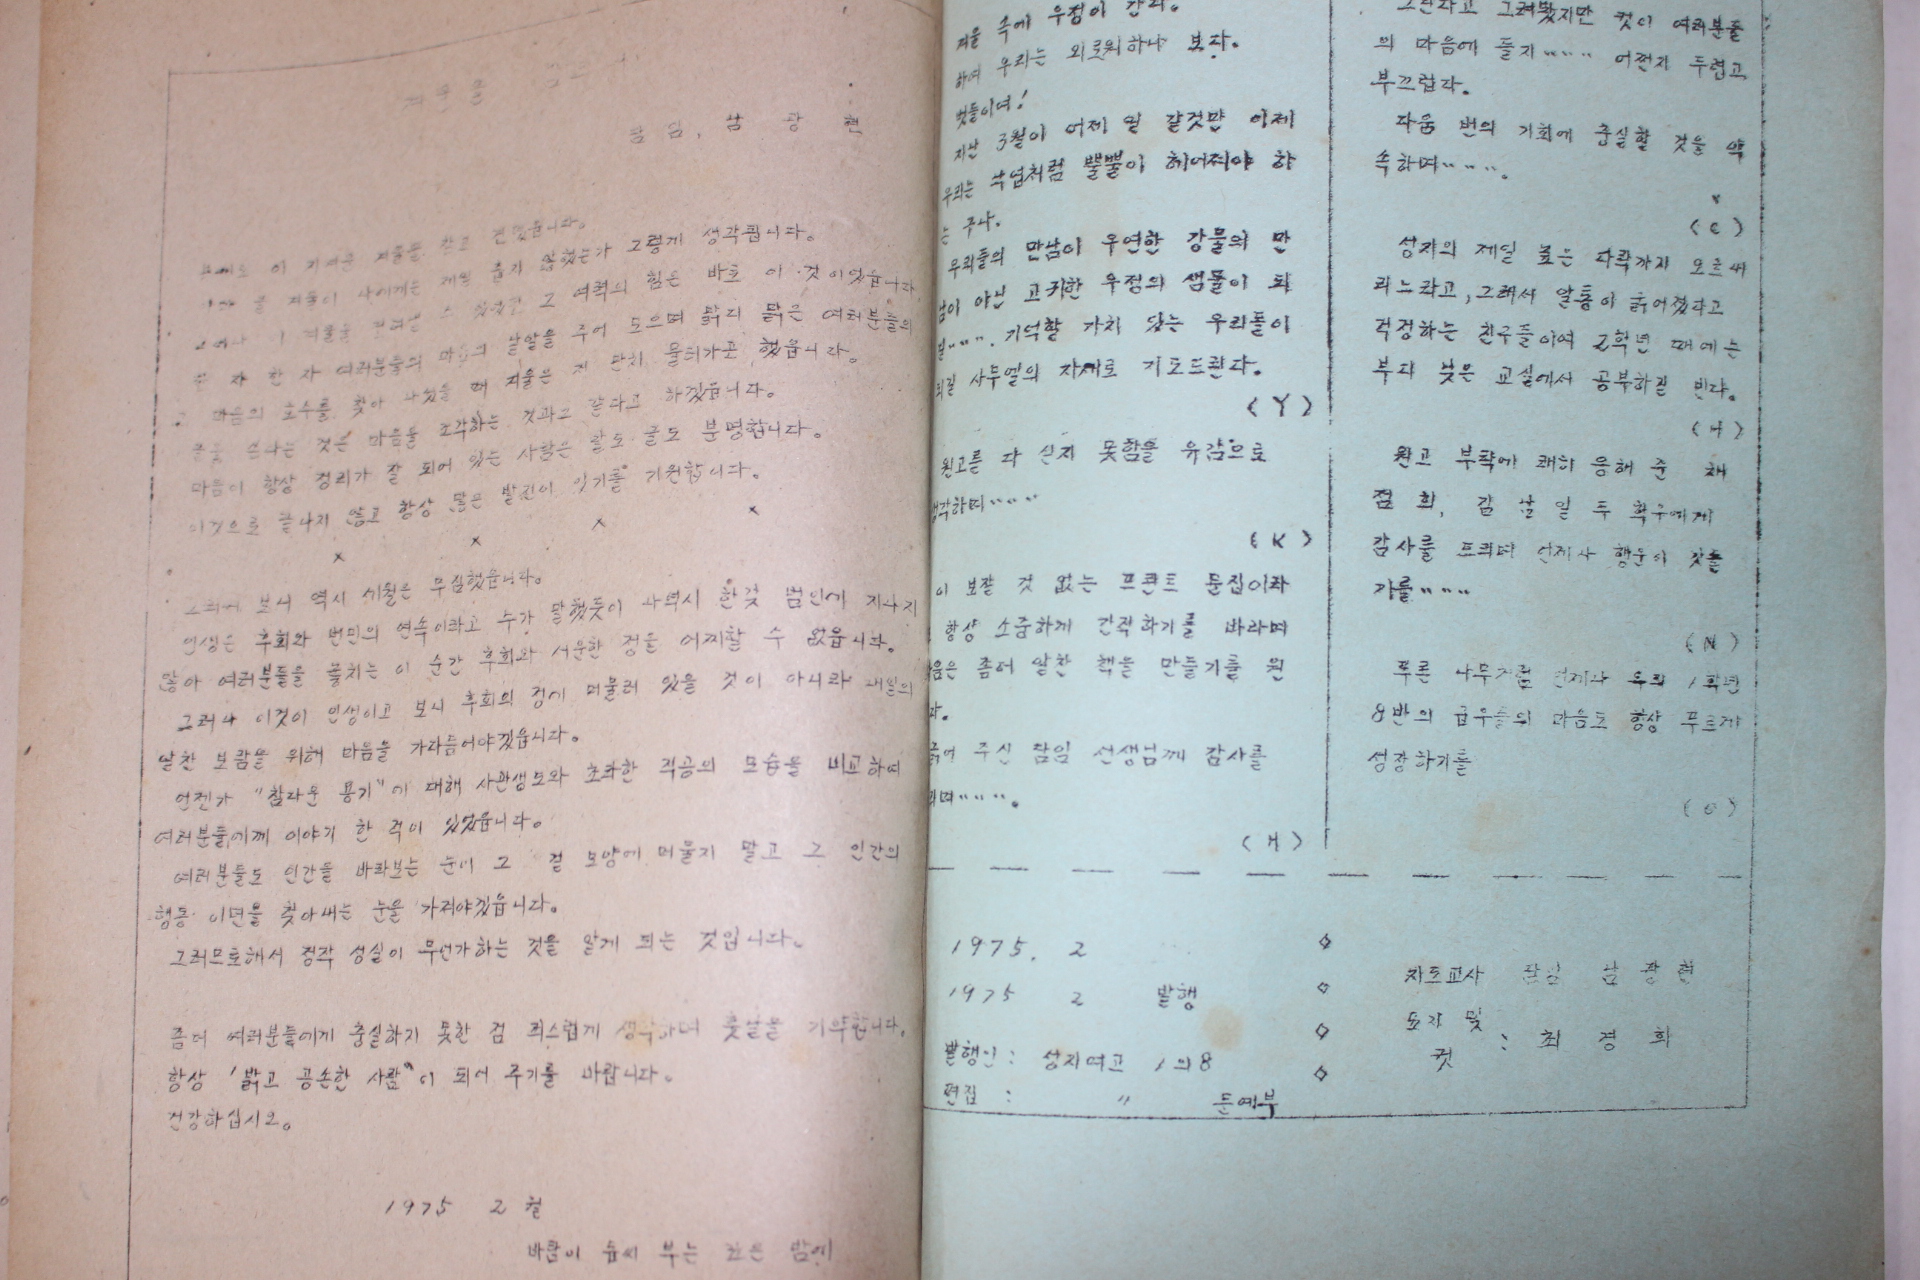 담임, 남 광 현
그렇게 생각됩니다.
여력의 힘은 바로 이 것이었읍니다.
자 한 자 여러분들의 마음의 낱알을 주어 모으며 맑디 맑은 여러분들의
마음의 호수를 찾아 나섰을 때 겨울은 저 만치 물러가곤 했읍니다.
글을 쓴다는 것은 마음을 조각하는 것과고 같다고 하겠읍니다.
마음이 항상 정리가 잘 되어 있는 사람은 말도 글도 분명합니다.
이것으로 끝나지 않고 항상 많은 발전이 있기를 기원합니다.
× × × ×
보니 역시 세월은 무심했읍니다.
인생은 후회와 번민의 연속이라고 누가 말했듯이 나 역시 한갖 범인에 지나지
않아 여러분들을 놓치는 이 순간 후회와 서운한 정을 어찌할 수 없읍니다.
그러나 이것이 인생이고 보니 후회의 정에 머물러 있을 것이 아니라 내일의
알찬 보람을 위해 마음을 가다듬어야겠읍니다.
언젠가 "참다운 용기"에 대해 사관생도와 초라한 직공의 모습을 비교하여
여러분들에게 이야기 한 적이 있었읍니다.
여러분들도 인간을 바라보는 눈이 그 겉 모양에 머물지 말고 그 인간의
행동 이면을 찾아내는 눈을 가져야겠읍니다.
그러므로해서 정작 성실이 무언가하는 것을 알게 되는 것입니다.
좀더 여러분들에게 충실하기 못한 점 죄스럽게 생각하며 훗날을 기약합니다.
항상 '밝고 공손한 사람"이 되어 주기를 바랍니다.
건강하십시오.
1975 2월
바람이 몹씨 부는 밤에
겨울 속에 우정이 간다.
하여 우리는 외로워하나 보다.
벗들이여!
지난 3월이 어제 일 같것만 이제
우리는 낙엽처럼 뿔뿔이 헤어져야 하
는 구나.
우리들의 만남이 우연한 강물의 만
남이 아닌 고귀한 우정의 샘물이 되
길...... 기억할 가치 있는 우리들이
되길 사무엘의 자세로 기도드린다.
(Y)
원고를 다 싣지 못함을 유감으로
생각하며......
(K)
이 보잘 것 없는 프린트 문집이라
항상 소중하게 간직하기를 바라며
다음은 좀더 알찬 책을 만들기를 원
다.
주신 담임 선생님께 감사를
리며......
(H)
그린다고 그려봤지만 컷이 여러분들
의 마음에 들지...... 어쩐지 두렵고
부끄럽다.
다음 번의 기회에 충실할 것을 약
속하며......
(C)
성지의 제일 높은 다락까지 오르내
리느라고, 그래서 알통이 굵어졌다고
걱정하는 친구들이여 2학년 때에는
부디 낮은 교실에서 공부하길 빈다.
(H)
원고 부탁에 쾌히 응해 준 채
점 희, 감 남 일 두 학우에게
감사를 드리며 언제나 행운이 깃들
기를......
(N)
푸른 나무처럼 언제나 우리 1학년
8반의 급우들의 마음도 항상 푸르게
성장하기를
(O)
1975. 2
1975 2 발행
발행인: 성지여고 1의8
편집 : 〃 문예부
지도교사 담임 남 광 현
도자 및
컷 : 최 경 희